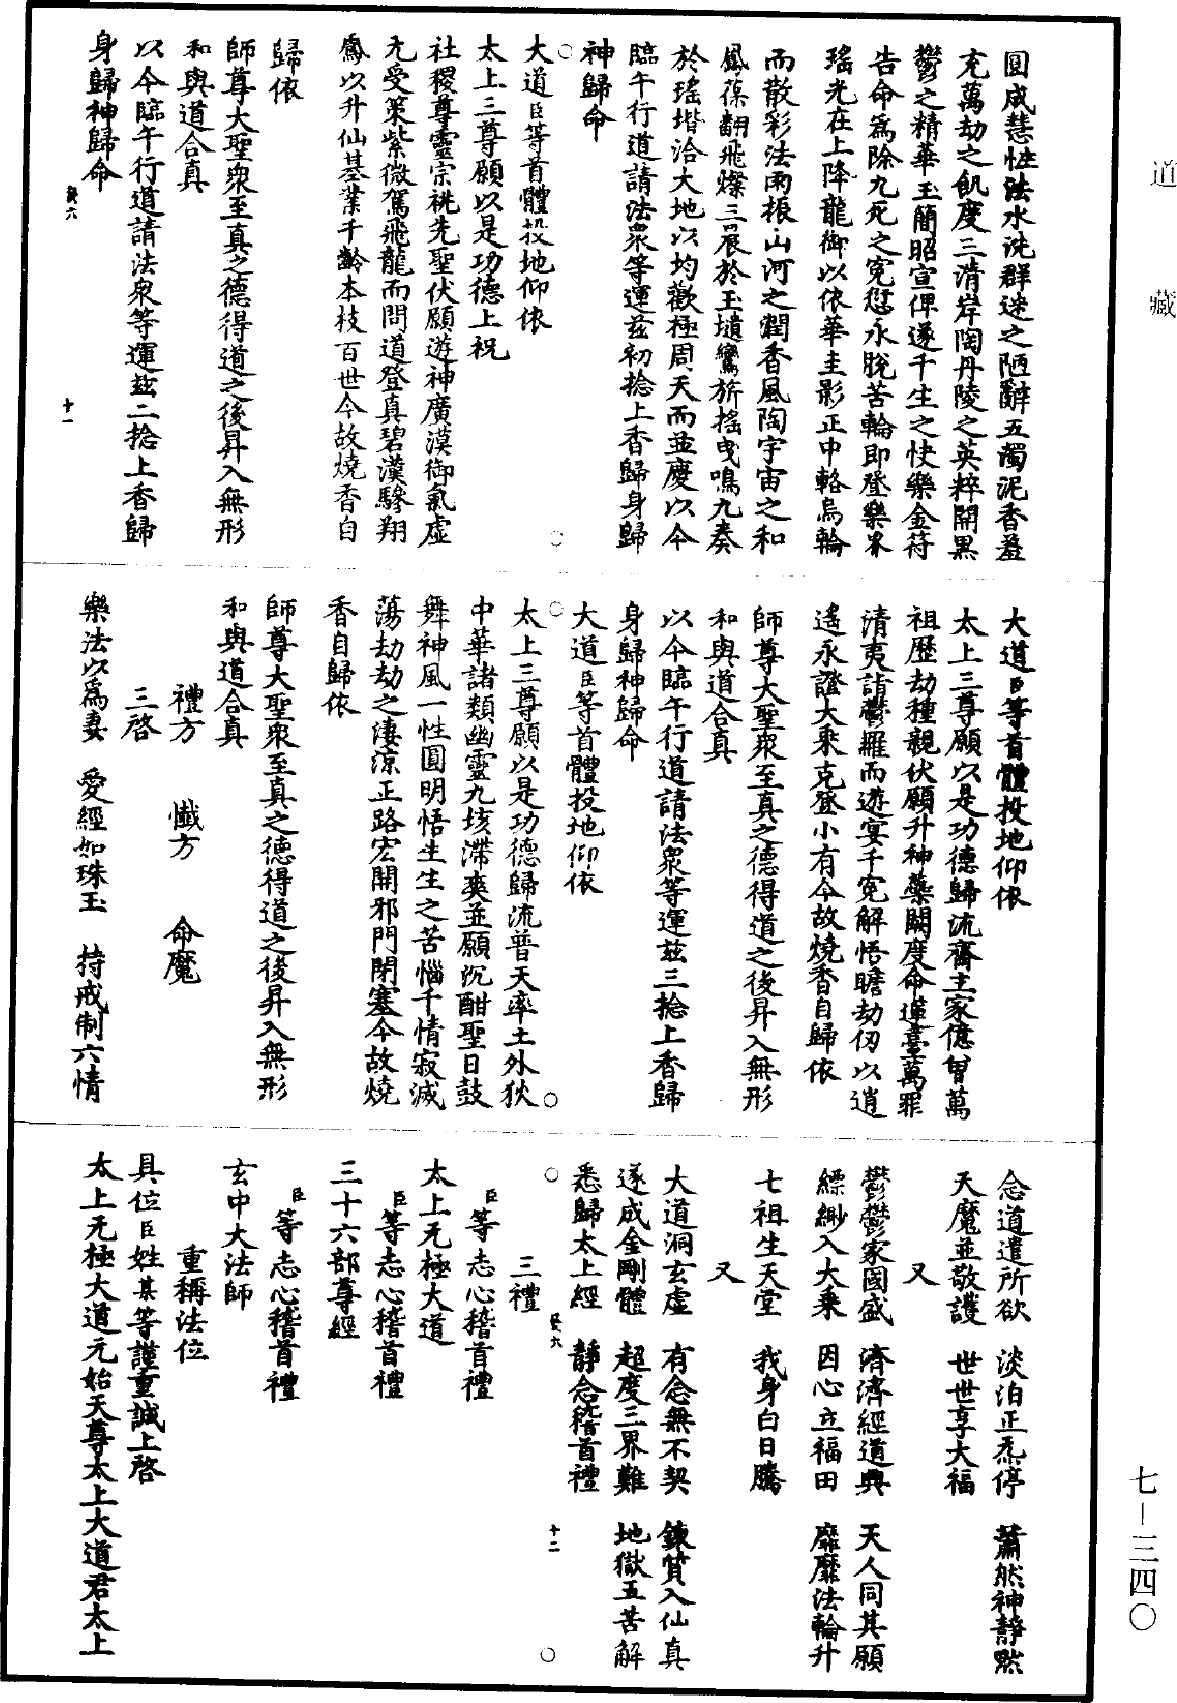 道藏
圓成慧性法水洗群迷之陋醉五濁泥香羞
充萬劫之飢度三清岸陶丹陵之英粹開黑
鬱之精華玉簡昭宣俾遂千生之快樂金符
告命爲除九死之寃愆永脫苦輪即登樂界
瑤光在上降龍御以依華圭影正中輅烏輪
而散彩法雨根山河之潤香風陶宇宙之和
鳳葆翻飛燦三辰於玉墳鸞旂搖曳鳴九奏
於瑤堦洽大地以均歡極周天而並慶以今
臨午行道請法衆等運茲初捻上香歸身歸
神歸命
大道臣等首體投地仰依
太上三尊願以是功德上祝
社稷尊靈宗祧先聖伏願遊神廣漠御氣虛
无受策紫微駕飛龍而問道登真碧漢驂翔
鳳以升仙基業千齡本枝百世今故燒香自
歸依
師尊大聖衆至真之德得道之後昇入無形
和與道合真
以今臨午行道請法衆等運茲二捻上香歸
身歸神歸命
大道臣等首體投地仰依
太上三尊願以是功德歸流齋主家億曾萬
祖歷劫種親伏願升神蘂闕度命蓮臺萬罪
清夷詣鬱羅而遊宴千寃解悟瞻劫仞以逍
遙永證大乘克登小有今故燒香自歸依
師尊大聖衆至真之德得道之後昇入無形
和與道合真
以今臨午行道請法衆等運茲三捻上香歸
身歸神歸命
大道臣等首體投地仰依
太上三尊願以是功德歸流普天率土外狄
中華諸類幽靈九垓滯爽並願沉酣聖日鼓
舞神風一性圓明悟生生之苦惱千情寂滅
蕩劫劫之淒涼正路宏開邪門閉塞今故燒
香自歸依
師尊大聖衆至真之德得道之後昇入無形
和與道合真
禮方 懺方 命魔
三啓
樂法以爲妻 愛經如珠玉 持戒制六情
念道遣所欲 淡泊正炁停 蕭然神靜默
天魔並敬護 世世享大福
又
鬱鬱家國盛 濟濟經道興 天人同其願
縹緲入大乘 因心立福田 靡靡法輪升
七祖生天堂 我身白日騰
又
大道洞玄虛 有念無不契 鍊質入仙真
遂成金剛體 超度三界難 地獄五苦解
悉歸太上經 靜念稽首禮
三禮
臣等志心稽首禮
太上无極大道
臣等志心稽首禮
三十六部尊經
臣等志心稽首禮
玄中大法師
重稱法位
具位臣姓某等謹重誠上啓
太上无極大道元始天尊太上大道君太上
七—三四〇